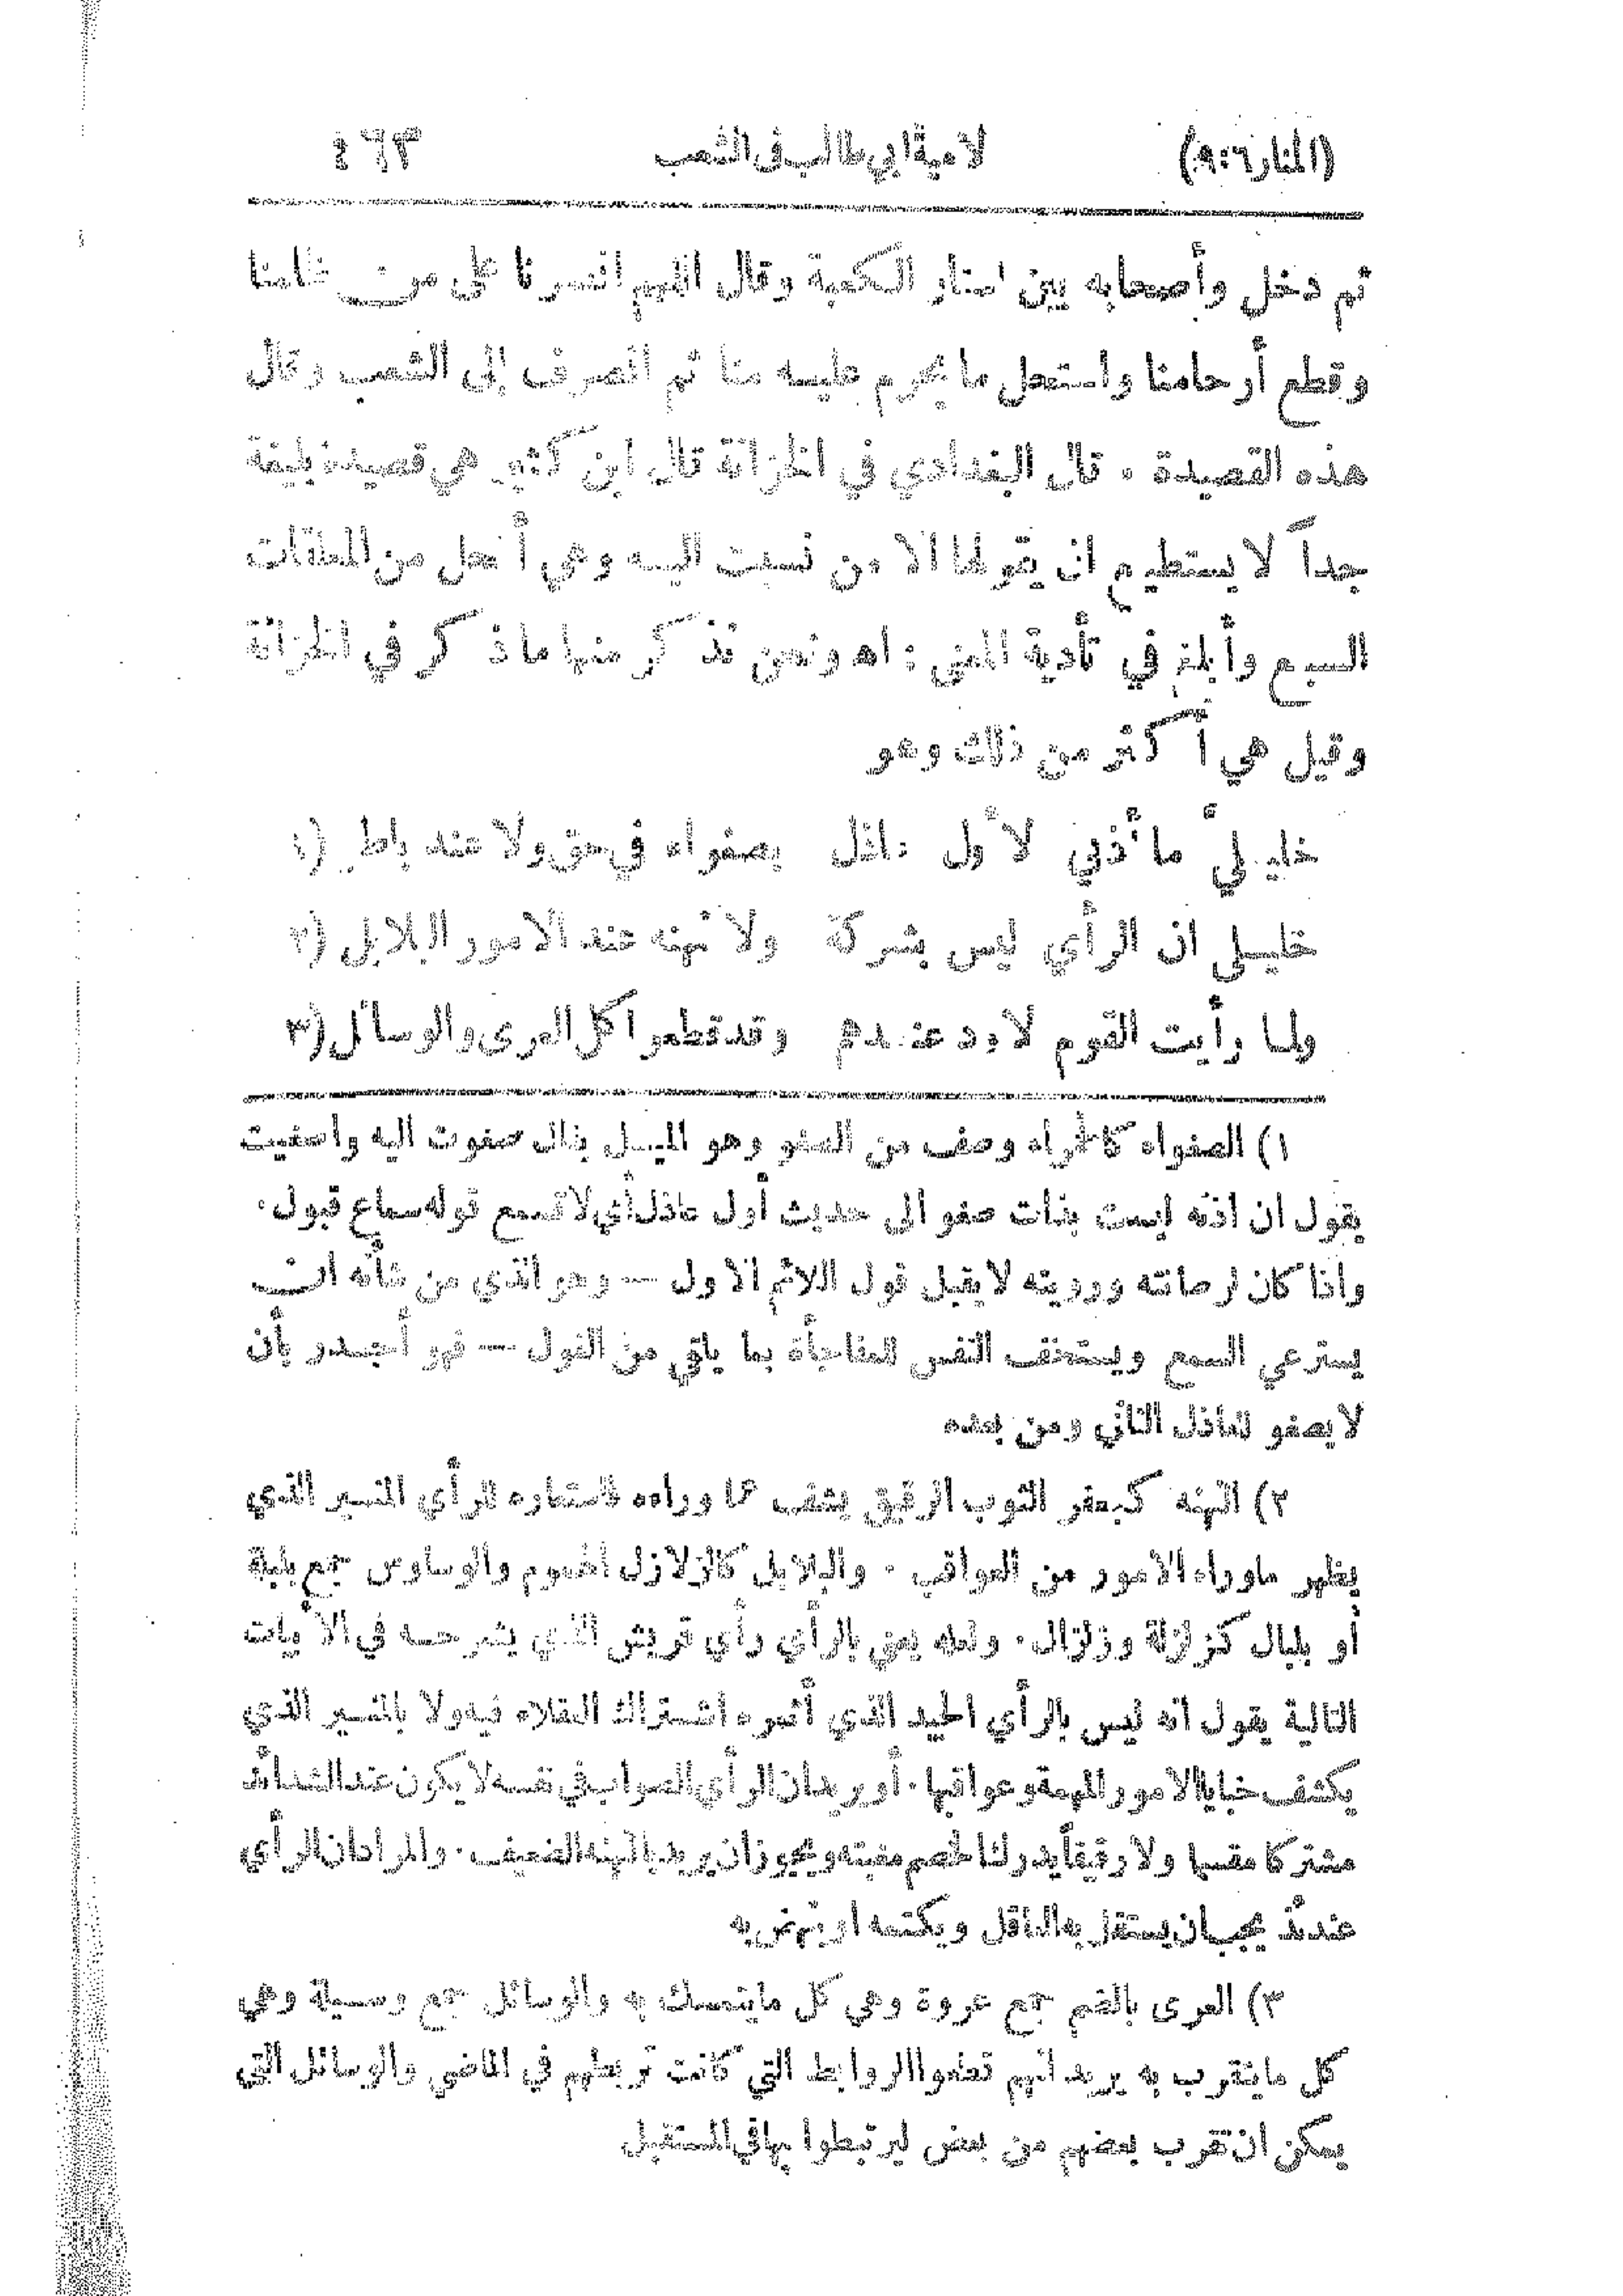 (المنار ٦:٩) لامية ابي طالب في الشعب ٤٦٣
ثم دخل وأصحابه بين استار الكعبة وقال اللهم انصرنا على من ظلمنا
وقطع أرحامنا واستحل ما يحرم عليه منا ثم انصرف إلى الشعب وقال
هذه القصيدة ٠ قال البغدادي في الخزانة قال ابن كثير هي قصيدة بليغة
جداً لا يستطيع ان يقولها الا من نسبت اليه وهي أفحل من المعلقات
السبع وأبلغ في تأدية المعنى : اه ونحن نذكر منها ما ذكر في الخزانة
وقيل هي أكثر من ذلك وهو
خليليَّ ما أُذني لأول عاذل بصغواء في حق ولا عند باطل (١
خليلي ان الرأي ليس بشركة ولا نهنه عند الامور البلابل (٢
ولما رأيت القوم لا ود عندهم وقد قطعوا كل العرى والوسائل (٣
١) الصغواء كالحمراء وصف من الصغو وهو الميل يقال صغوت اليه واصغيت
يقول ان اذنه ليست بذات صغو الى حديث أول عاذل أي لا تسمع قوله سماع قبول٠
واذا كان لرصانته ورويته لا يقبل قول اللائم الاول — وهو الذي من شأنه ان
يسترعي السمع ويستخف النفس للمفاجأة بما يلقي من القول — فهو أجدر بأن
لا يصغو للعاذل الثاني ومن بعده
٢) النهنه كجعفر الثوب الرقيق يشف عما وراءه فاستعاره للرأي المنير الذي
يظهر ما وراء الامور من العواقب ٠ والبلابل كالزلازل الهموم والوساوس جمع بلبلة
أو بلبال كزلزلة وزلزال٠ ولعله يعني بالرأي رأي قريش الذي يشرحه في الأبيات
التالية يقول انه ليس بالرأي الجيد الذي أثمره اشتراك العقلاء فيه ولا بالمنير الذي
يكشف خبايا الامور المهمة وعواقبها ٠ أو يريد ان الرأي الصواب في نفسه لا يكون عند الشدائد
مشتركا مقسما ولا رقيقاً يدرك الخصم مغبته ويجوز ان يريد بالنهنه الضعيف ٠ والمراد ان الرأي
عندئذ يجب ان يستقل به العاقل ويكتمه او ينهض به
٣) العرى بالضم جمع عروة وهي كل ما يتمسك به والوسائل جمع وسيلة وهي
كل ما يتقرب به يريد انهم قطعوا الروابط التي كانت تربطهم في الماضي والوسائل التي
يمكن ان تقرب بعضهم من بعض ليرتبطوا بها في المستقبل